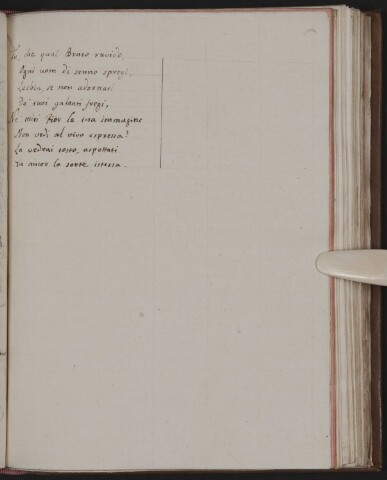 Tu, che qual Bruto ruvido,
Ogni uom di senno spregi,
Lesbia, se non adornasi
De' tuoi galanti fregi,
Ne' miei Fior la tua immagine
Non vedi al vivo espressa?
La vedrai tosto, aspettati
Tu ancor la sorte istessa.